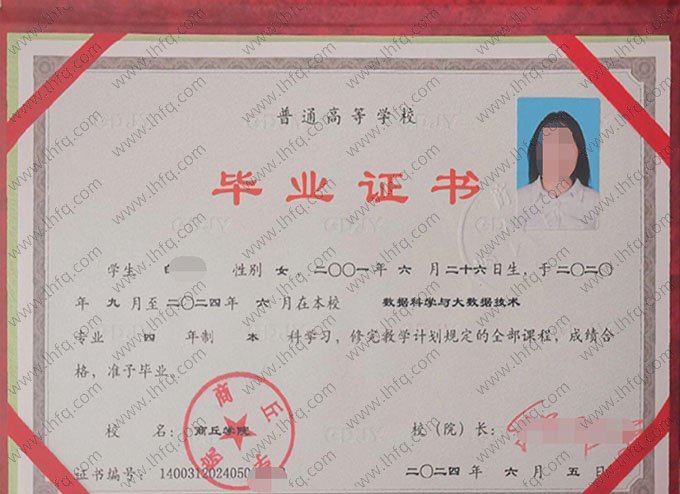 普通高等学校
毕业证书
学生 白 性别 女，二〇〇一年 六 月二十六日生，于二〇二〇
年 九 月至二〇二四年 六 月在本校 数据科学与大数据技术
专业 四 年制 本 科学习，修完教学计划规定的全部课程，成绩合
格，准予毕业。
校 名：商丘学院
校（院）长：
证书编号：1400312024050
二〇二四年 六 月 五 日
商丘学院
www.lhfq.com